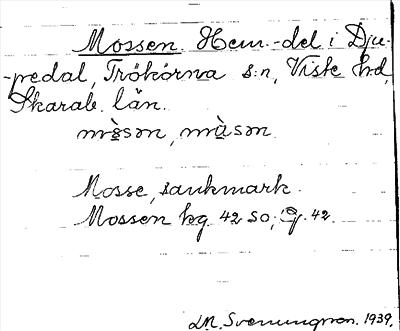 Mossen. Hem.-del i Dju-
-pedal, Trökörna s:n, Viste hd,
Skarab. län.
mòsən, mùsən
Mosse, sankmark.
Mossen hg. 42 SO; 42.
LM. Svenungsson. 1939.